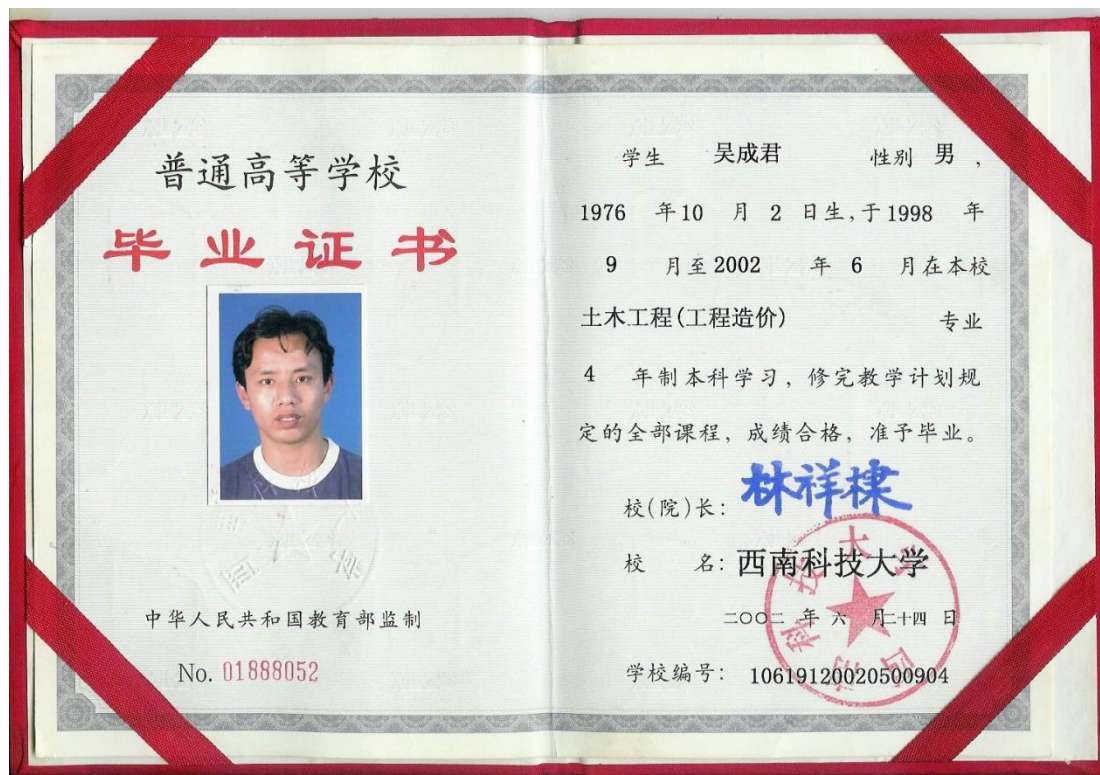 普通高等学校
毕业证书
中华人民共和国教育部监制
No. 01888052
学生 吴成君 性别 男，
1976 年 10 月 2 日生，于 1998 年
9 月至 2002 年 6 月在本校
土木工程(工程造价) 专业
4 年制本科学习，修完教学计划规
定的全部课程，成绩合格，准予毕业。
校(院)长： 林祥棣
校 名： 西南科技大学
二〇〇二 年 六 月二十四 日
学校编号： 10619120020500904
西南科技大学